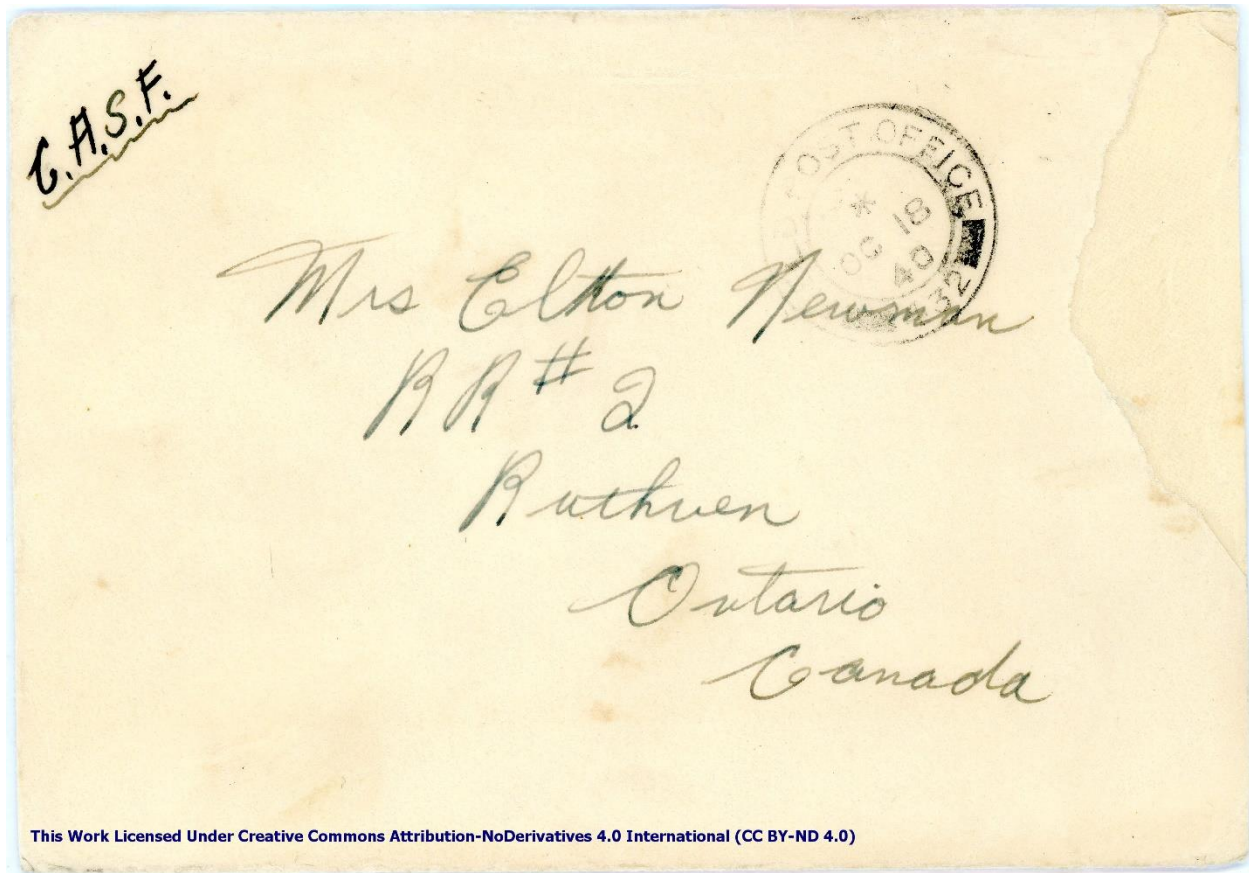 C.A.S.F.
POST OFFICE
*
OC 18
40
Mrs Elton Newman
RR # 2
Ruthven
Ontario
Canada
This Work Licensed Under Creative Commons Attribution-NoDerivatives 4.0 International (CC BY-ND 4.0)